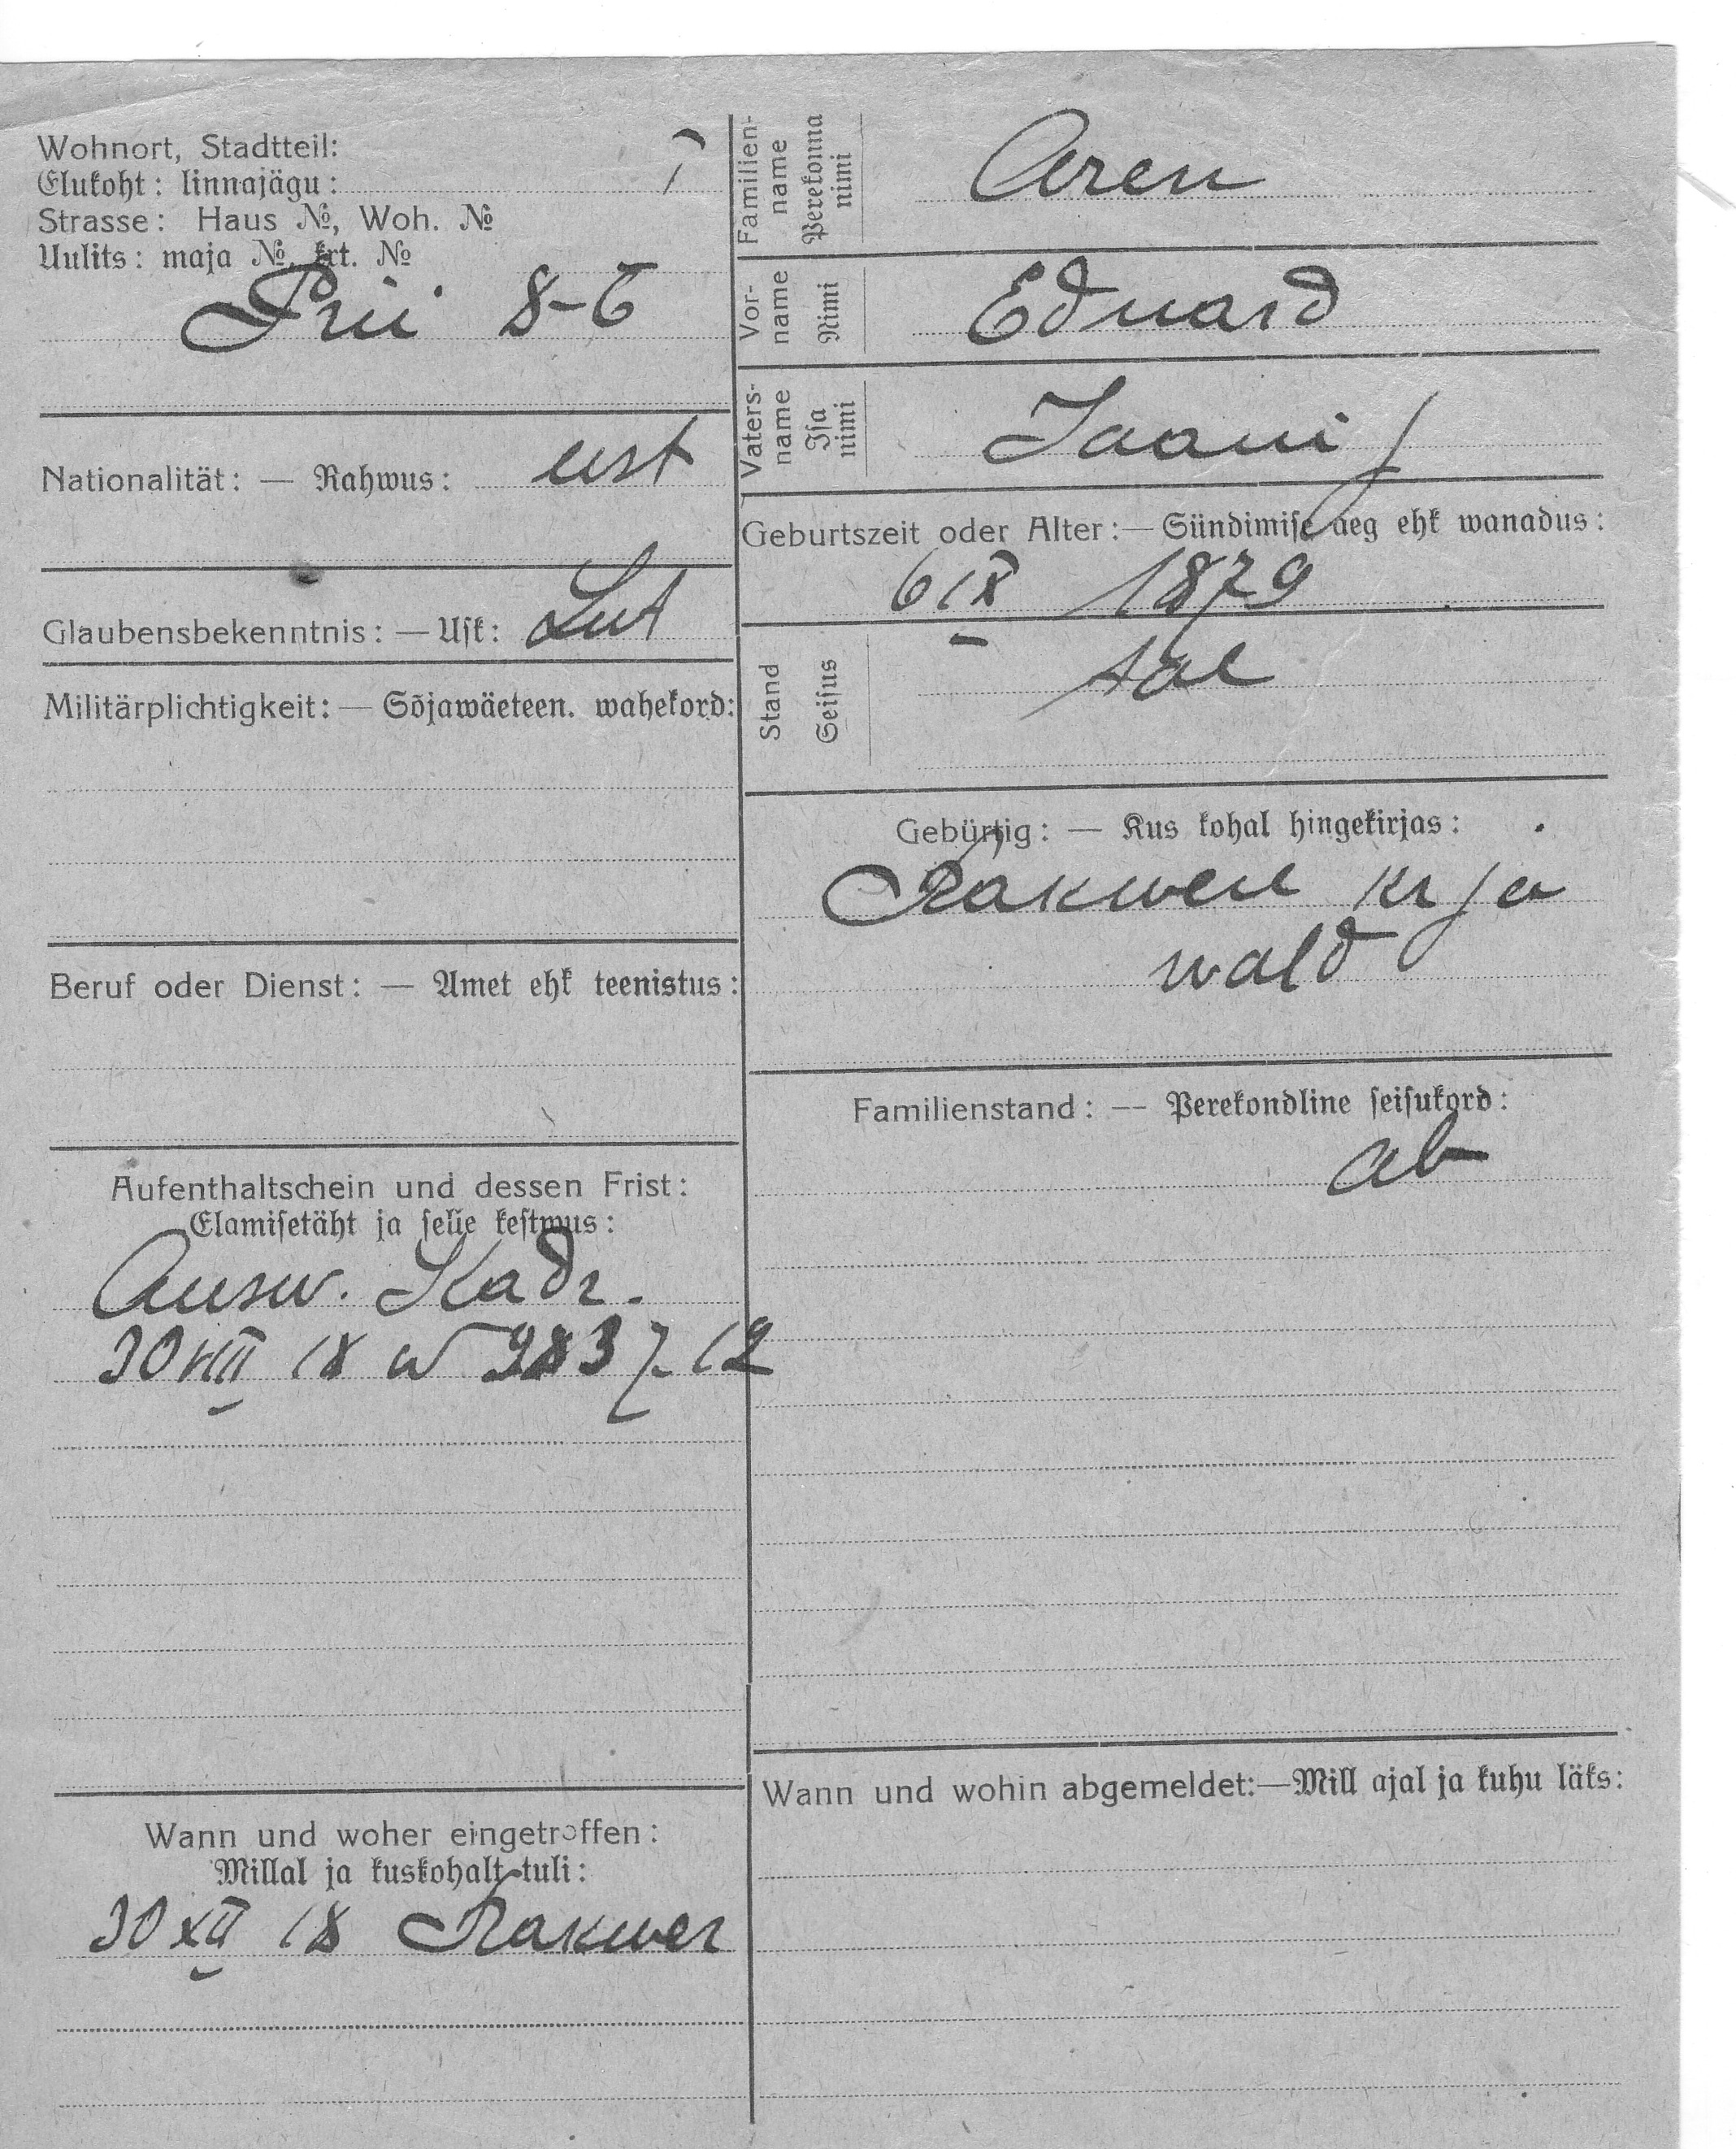 Wohnort, Stadtteil:
Elukoht: linnajägu:
Strasse: Haus №, Woh. №
Uulits: maja №, krt. №
Prii 8-6
Nationalität: — Rahwus: est
Glaubensbekenntnis: — Usk: Lut
Militärplichtigkeit: — Sõjawäeteen. wahekord:
Beruf oder Dienst: — Amet ehk teenistus:
Aufenthaltschein und dessen Frist:
Elamisetäht ja selle kestwus:
Ausw. Kadr.
30 VIII 18 N 9837-12
Wann und woher eingetroffen:
Millal ja kuskohalt tuli:
30 XII 18 Rakwer
Familien-
name
Perekonna
nimi
Aren
Vor-
name
Nimi
Eduard
Vaters-
name
Isa
nimi
Jaani
Geburtszeit oder Alter: — Sündimise aeg ehk wanadus:
6 IX 1879
Stand
Seisus
tal
Gebürtig: — Kus kohal hingekirjas:
Rakwere kr
wald
Familienstand: — Perekondline seisukord:
ab
Wann und wohin abgemeldet: — Mill ajal ja kuhu läks: